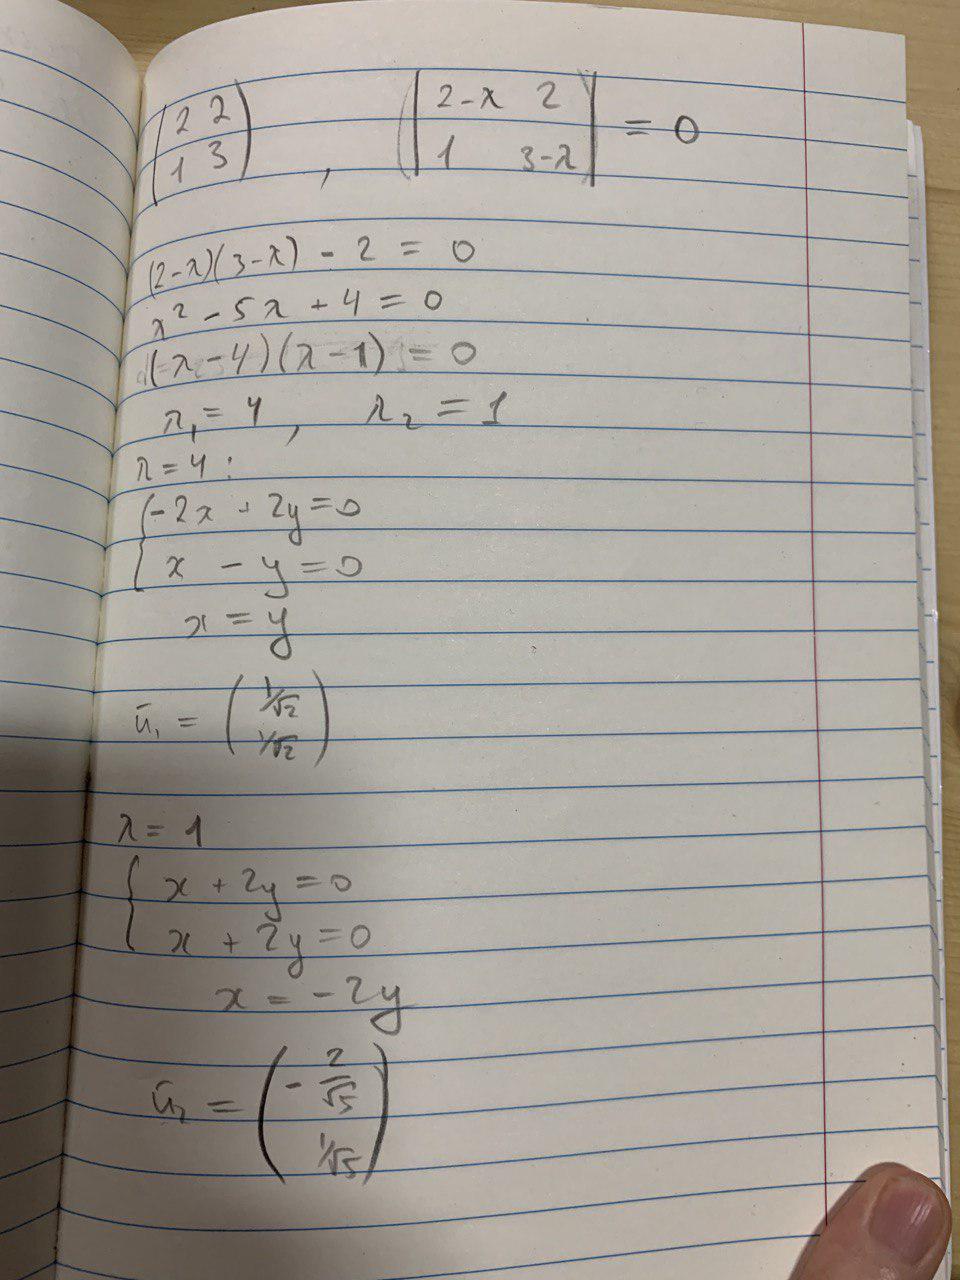 (2 2
1 3) , |2-λ 2
1 3-λ| = 0
(2-λ)(3-λ) - 2 = 0
λ² - 5λ + 4 = 0
(λ-4)(λ-1) = 0
λ₁ = 4 , λ₂ = 1
λ = 4 :
{-2x + 2y = 0
x - y = 0
x = y
ū₁ = (1/√2
1/√2)
λ = 1
{x + 2y = 0
x + 2y = 0
x = -2y
ū₂ = (-2/√5
1/√5)